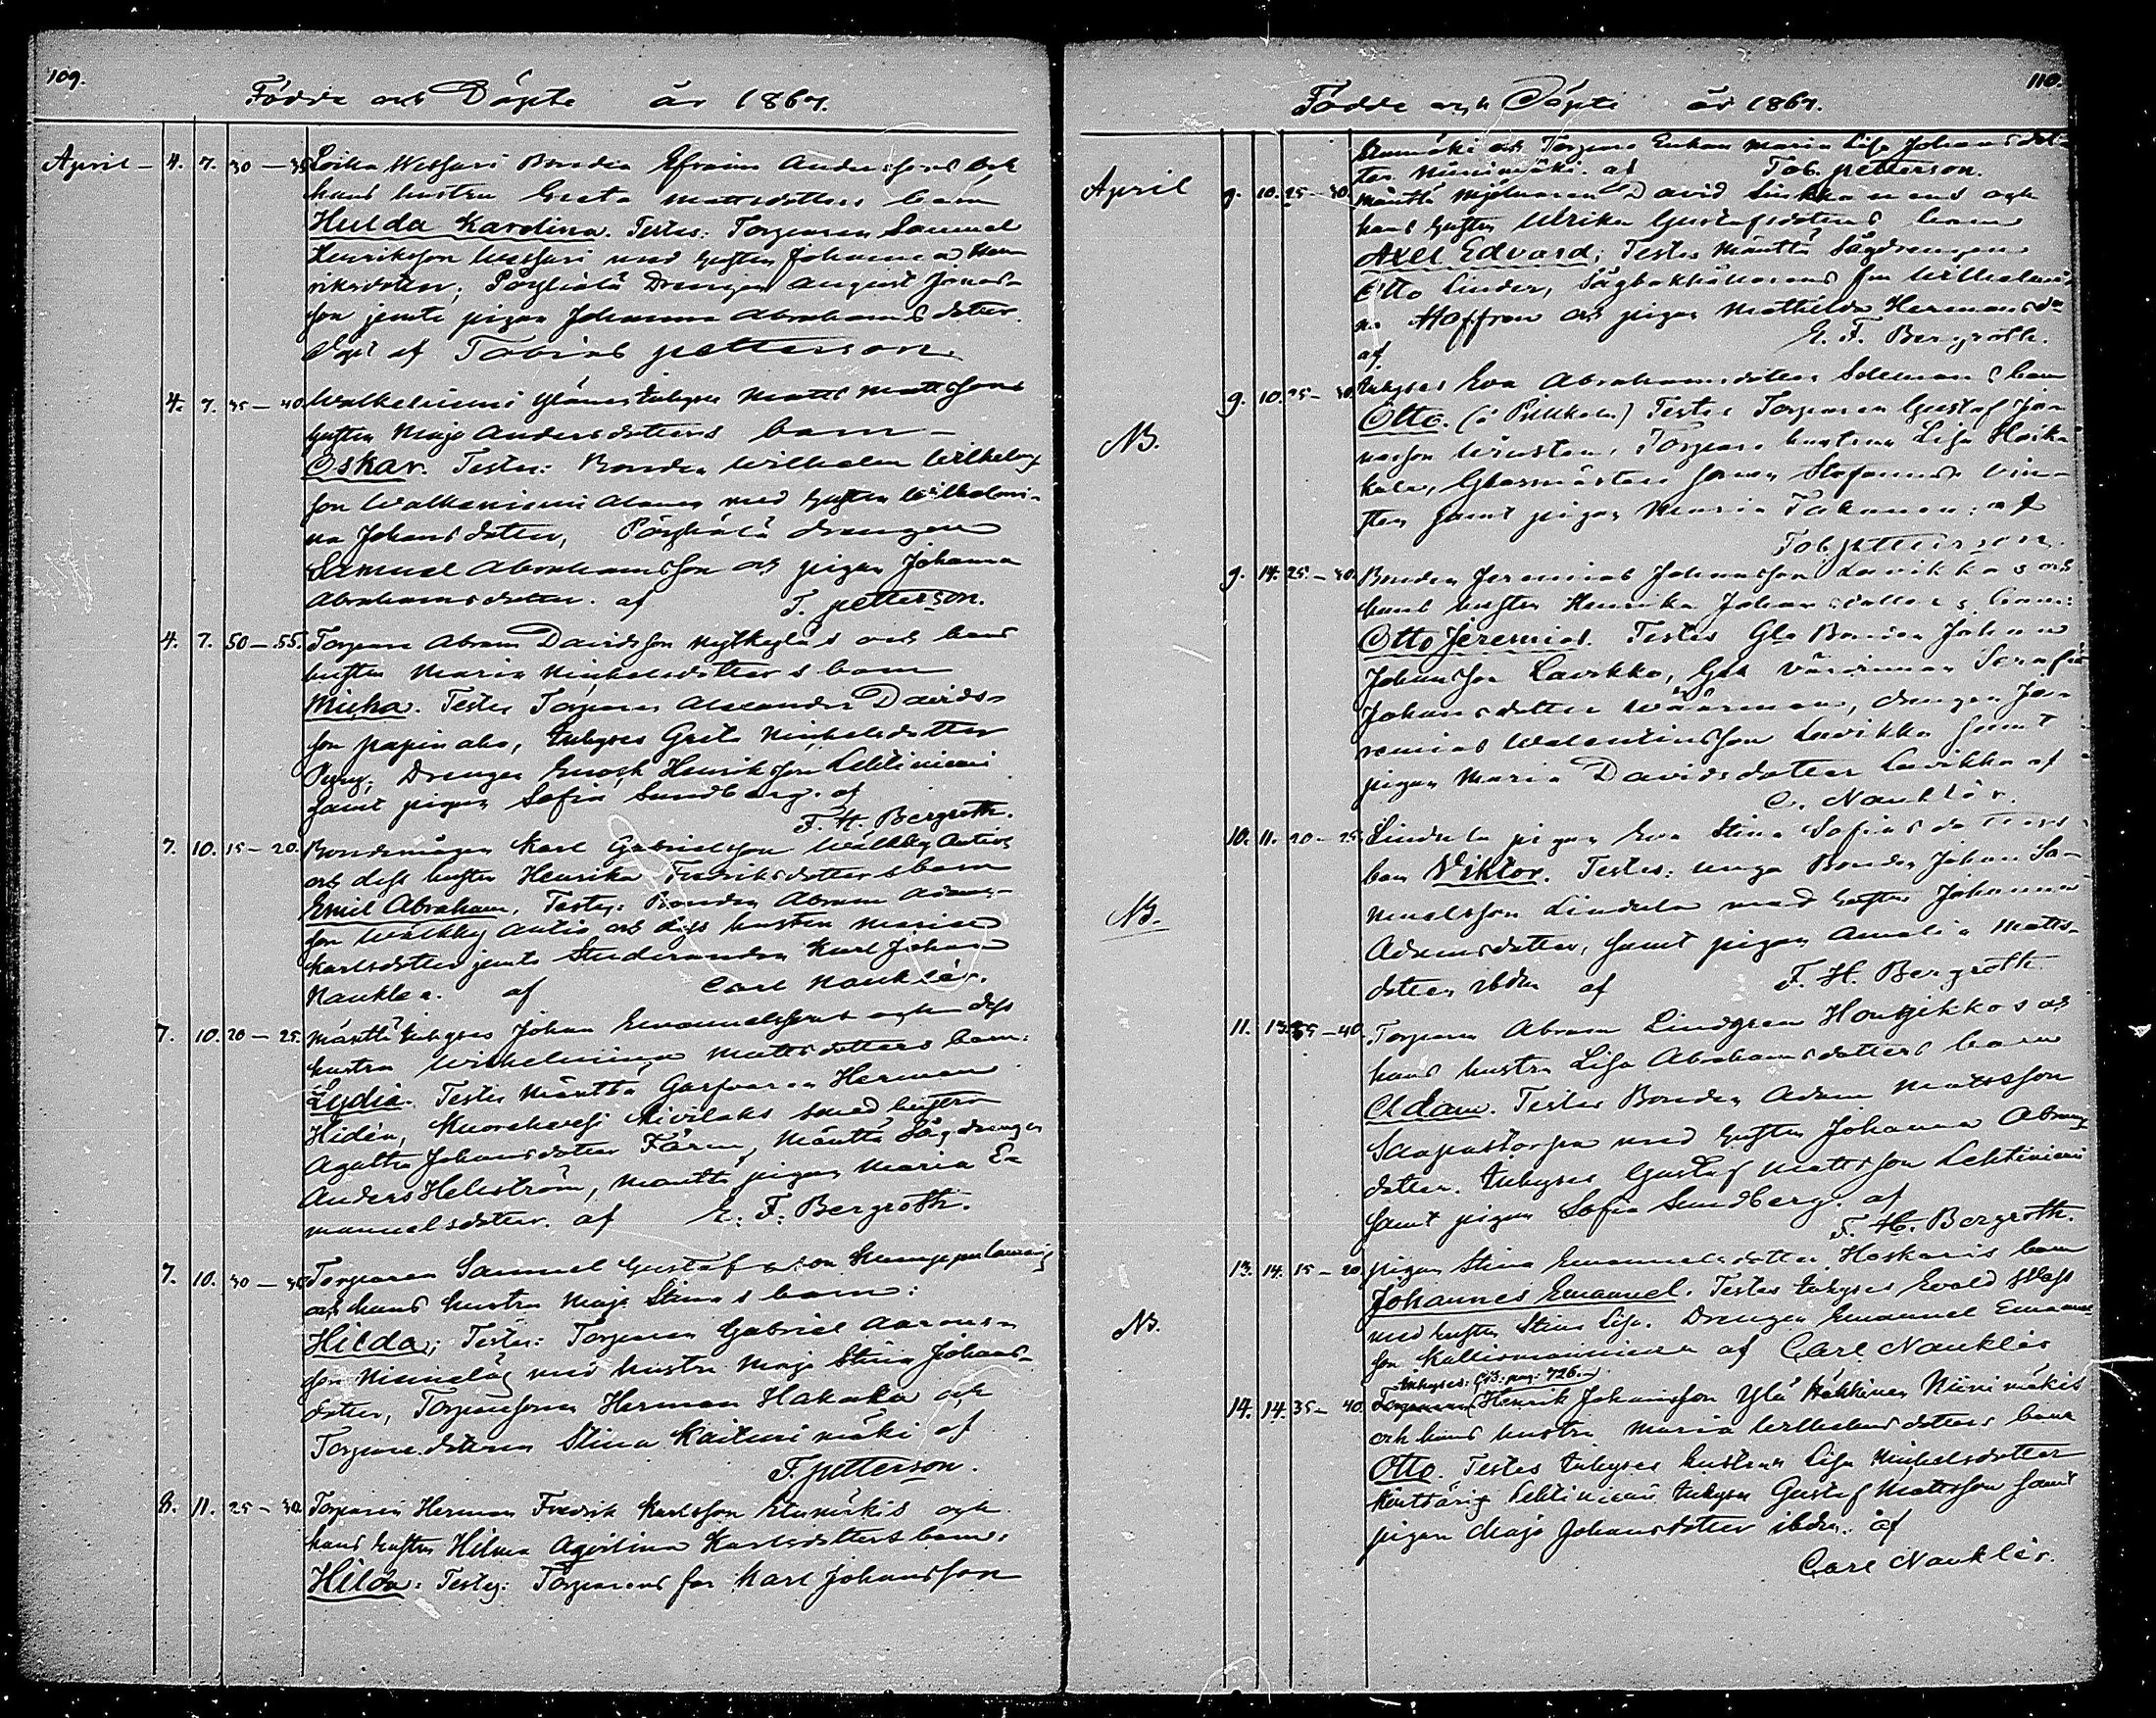 109.
Födde och Döpte år 1867.
April - 4. 7. 30 - 35 Loila Wessari Bonden Efraim Anderssons och
hans hustru Greta Mattsdotters barn
Hulda Karolina. Testes: Torparen Samuel
Henriksson Wessari med hustru Johanna Hen-
riksdotter, Pöyhölä Drengen August Jonas-
son jemte pigan Johanna Abrahamsdotter.
Döpt af Tobias Petterson.
4. 7. 35 - 40. Mattsons
hustru Maja Andersdotters barn -
Oskar. Testes: Bonden Wilhelm Wilhelms-
son med hustru Wilhelmi-
na Johansdotter, drengen
Samuel Abrahamsson och pigan Johanna
Abrahamsdotter. af T. Petterson.
4. 7. 50 - 55. Torparen Abram Davidsson och hans
hustru Maria Michelsdotters barn
Micha. Testes Torparen Alexander Davids-
son papinaho, Inhyses Greta Michelsdotter
Drengen Enoch Henriksson Lehtiniemi
samt pigan Sofia Sundberg. af
F. H. Bergroth.
7. 10. 15 - 20. Bondemågen Karl Gabrielsson Wälkky Antios
och dess hustru Henrika Fredriksdotters barn
Emil Abraham. Testes: Bonden Abram Adams-
son Wälkky Antio och dess hustru Maria
Karlsdotter jemte Studeranden Karl Johan
Nauklér. af Carl Nauklér.
7. 10. 20 - 25. Mänttä Inhyses Johan Emanuelssons och dess
hustru Wilhelmina Mattsdotters barn:
Lydia. Testes Mänttä Garfvaren Herman
Hidén, Kivilaks med hustru
Agatha Johansdotter Färm, Mänttä Sågdrengen
Anders Helleström, Mänttä pigan Maria E-
manuelsdotter. af E. F. Bergroth.
7. 10. 30 - 35 Torparen Samuel Gustafsson
och hans hustru Maja Stinas barn:
Hilda; Testes: Torparen Gabriel Aarons-
son Niemelä med hustru Maja Stina Johans-
dotter, Torparesonen Herman Hakala och
Torparedottren Stina Kaitu mäki af
T. Petterson.
8. 11. 25 - 30. Torparen Herman Fredrik Karlsson Etumäkis och
hans hustru Hilma Agustina Karlsdotters barn:
Hilda: Testes: Torparens far Karl Johansson
110.
Födde och Döpte år 1867.
Etumäki och Torpare Enkan Maria Lisa Johansdot-
ter Niinimäki. af Tob. Petterson.
April 9. 10. 25 - 30. Mänttä Mjölnaren David och
hans hustru Ulrika Gustafsdotters barn
Axel Edvard; Testes Mänttä Sågdrengen
Otto Linder, Sågbokhållarens fru Wilhelmi-
na Hoffren och pigan Mathilda Hermansd:r
af E. F. Bergroth.
NB. 9. 10. 25 - 30. Inhyses Eva Abrahamsdotter Selmans barn
Otto. Testes Torparen Gustaf Jo-
nasson, Torpare hustrun Lisa Hoika
kala, Glasmästare sonen Stefanus Vin-
ter samt pigan Maria Takanen: af
Tob. Petterson.
9. 14. 25. - 30. Bonden Jeremias Johansson Lavikkas och
hans hustru Henrika Johansdotters barn:
Otto Jeremias. Testes Gla Bonden Johan
Johansson Lavikka, Gla värdinnan Serafia
Johansdotter Wäärinen, drengen Je-
remias Walentinsson Lavikka samt
pigan Maria Davidsdotter Lavikka af
C. Nauklér.
NB. 10. 11. 20 - 25. Lindula pigan Eva Stina Sofiasdotters
barn Viktor. Testes: unga Bonden Johan Sa-
muelsson Lindula med hustru Johanna
Adamsdotter, samt pigan Amalia Matts-
dotter ibdm af F. H. Bergroth
11. 13. 35 - 40. Torparen Abram Lindgren Honkikkos och
hans hustru Lisa Abrahamsdotters barn
Adam. Testes Bonden Adam Mattsson
med hustru Johanna Abrams-
dotter. Inhyses Gustaf Mattsson Lehtiniemi
samt pigan Sofia Sundberg. af
F. H. Bergroth.
NB. 13. 14. 15 - 20 pigan Stina Emanuelsdotter Hoskaris barn
Johannes Emanuel. Testes Inhyses Evald
med hustru Stina Lisa. Drengen Emanuel Emanuels-
son af Carl Nauklér
Inhyses: C.B. pag: 726.
14. 14. 35 - 40. Torparen Henrik Johansson Ylä Häkkinen Niinimäkis
och hans hustru Maria Wilhelmsdotters barn
Otto. Testes Inhyses hustrun Lisa Michelsdotter
Lehtiniemi Inhyses Gustaf Mattsson samt
pigan Maja Johansdotter ibdm. af
Carl Nauklér.